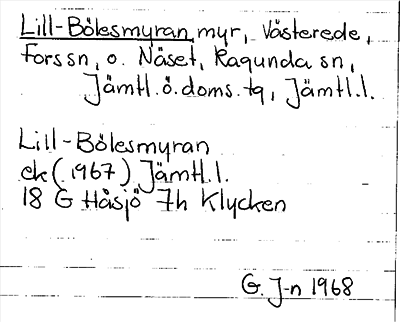 Lill-Bölesmyran, myr, Västerede,
Forssn, o. Näset, Ragunda sn,
Jämtl.ö.doms.tg, Jämtl.l.
Lill-Bölesmyran
ek (1967) Jämtl.l.
18 G Håsjö 7h Klycken
G. J-n 1968